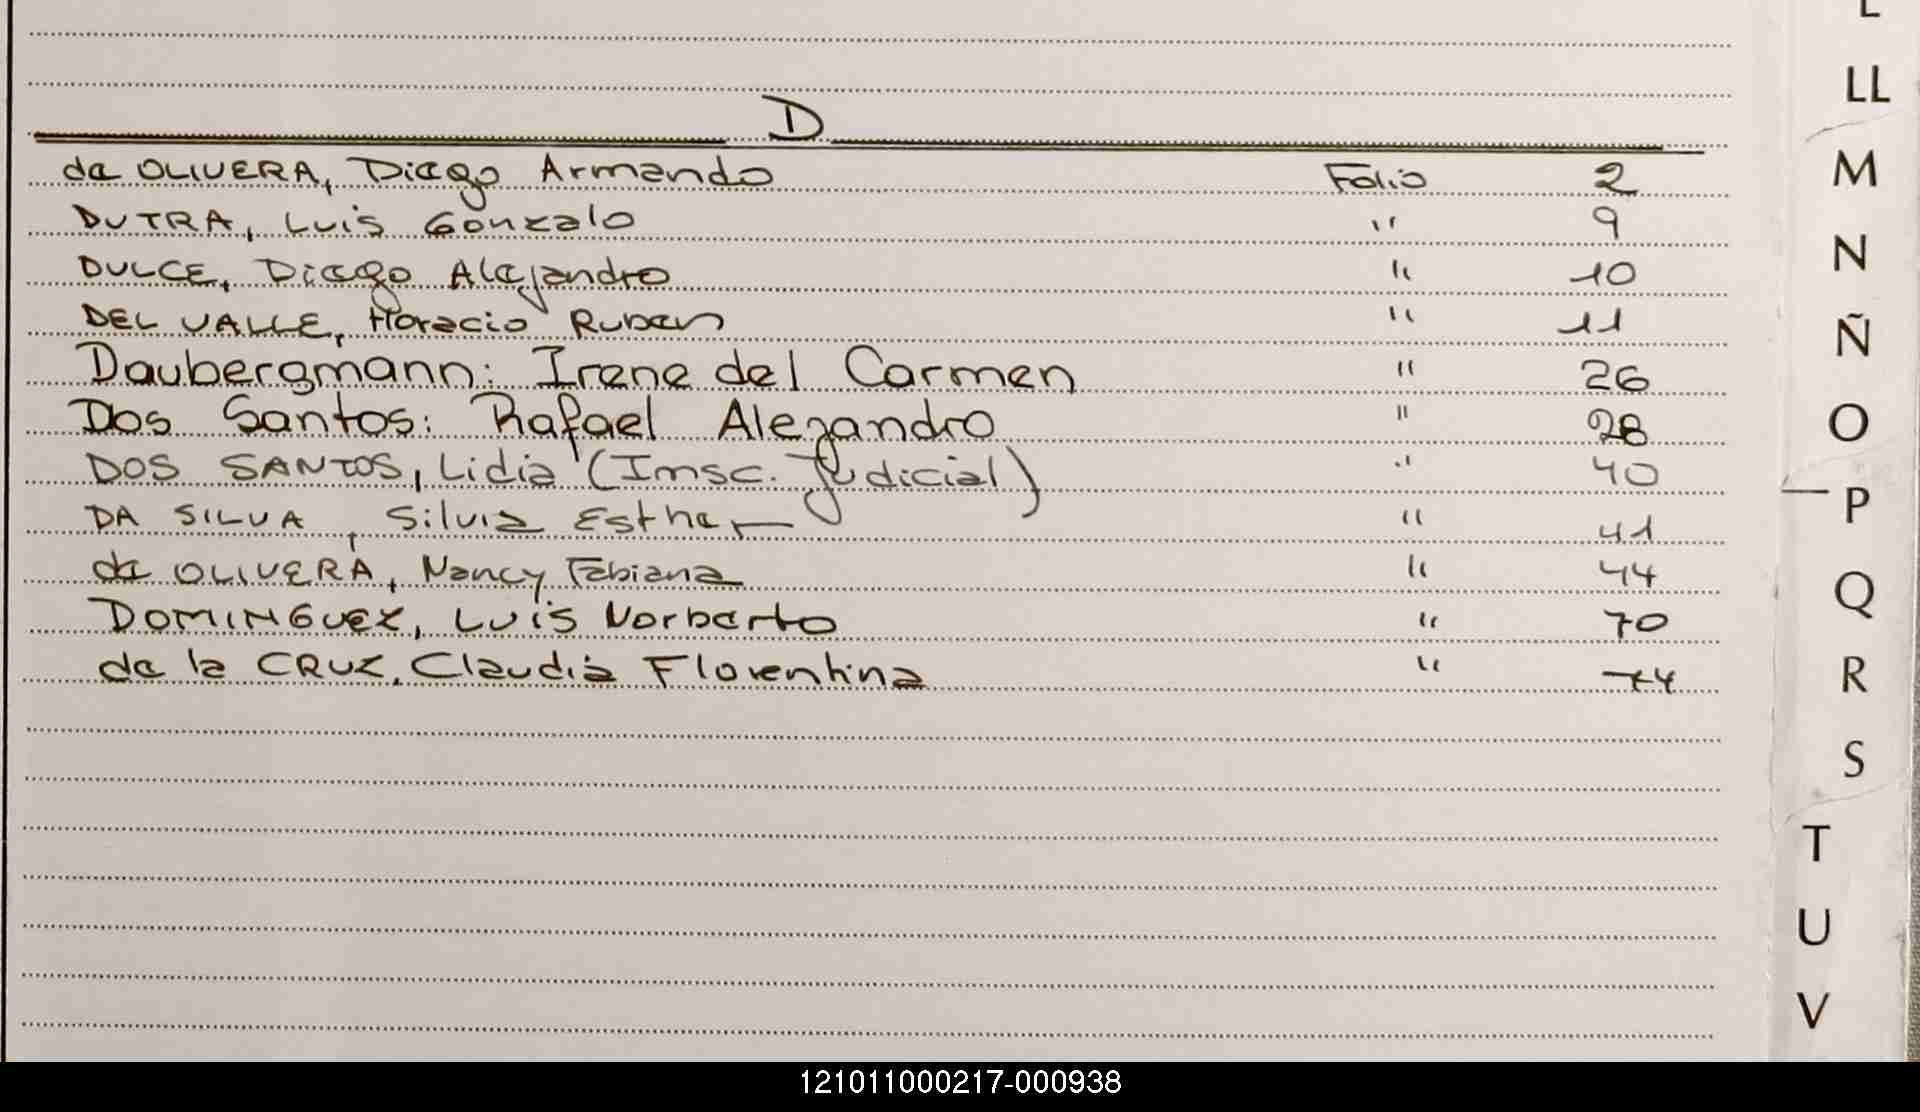 D
de OLIVERA, Diego Armando Folio 2
DUTRA, Luis Gonzalo " 9
DULCE, Diego Alejandro " 10
DEL VALLE, Horacio Ruben " 11
Daubergmann: Irene del Carmen " 26
Dos Santos: Rafael Alejandro " 28
DOS SANTOS, Lidia (Insc. Judicial) " 40
DA SILVA, Silvia Esther " 41
de OLIVERA, Nancy Fabiana " 44
DOMINGUEZ, Luis Norberto " 70
de la CRUZ, Claudia Florentina " 74
L
LL
M
N
Ñ
O
P
Q
R
S
T
U
V
121011000217-000938